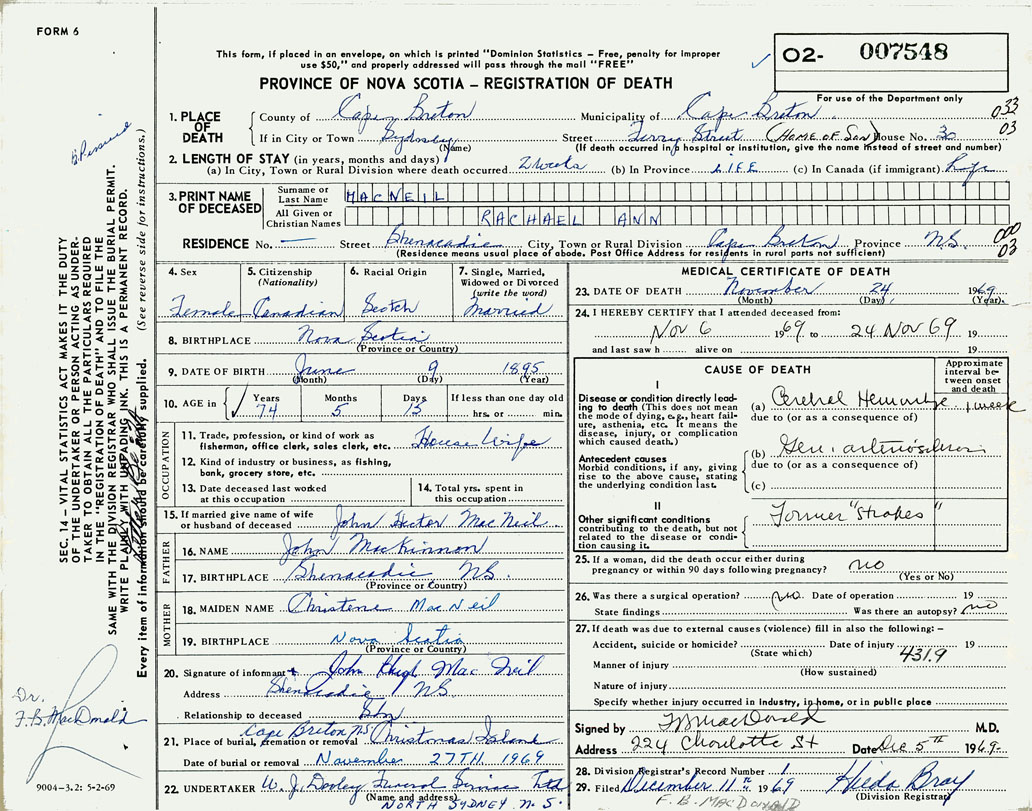 FORM 6
This form, if placed in an envelope, on which is printed "Dominion Statistics – Free, penalty for improper
use $50," and properly addressed will pass through the mail "FREE"
O2- 007548
PROVINCE OF NOVA SCOTIA – REGISTRATION OF DEATH
For use of the Department only
033
03
1. PLACE OF DEATH
County of Cape Breton Municipality of Cape Breton
If in City or Town Sydney Street Terry Street (HOME OF SON) House No. 30
(Name) (If death occurred in a hospital or institution, give the name instead of street and number)
2. LENGTH OF STAY (in years, months and days)
(a) In City, Town or Rural Division where death occurred 2 weeks (b) In Province LIFE (c) In Canada (if immigrant) Life
3. PRINT NAME OF DECEASED
Surname or Last Name MACNEIL
All Given or Christian Names RACHAEL ANN
000
03
RESIDENCE No. — Street Shenacadie City, Town or Rural Division Cape Breton Province N.S.
(Residence means usual place of abode. Post Office Address for residents in rural parts not sufficient)
4. Sex Female
5. Citizenship (Nationality) Canadian
6. Racial Origin Scotch
7. Single, Married, Widowed or Divorced (write the word) Married
8. BIRTHPLACE Nova Scotia
(Province or Country)
9. DATE OF BIRTH June 9 1895
(Month) (Day) (Year)
10. AGE in Years Months Days If less than one day old
74 5 15 hrs. or min.
OCCUPATION
11. Trade, profession, or kind of work as fisherman, office clerk, sales clerk, etc. House Wife
12. Kind of industry or business, as fishing, bank, grocery store, etc.
13. Date deceased last worked at this occupation
14. Total yrs. spent in this occupation
15. If married give name of wife or husband of deceased John Hector MacNeil
FATHER
16. NAME John MacKinnon
17. BIRTHPLACE Shenacadie N.S.
(Province or Country)
MOTHER
18. MAIDEN NAME Christene MacNeil
19. BIRTHPLACE Nova Scotia
(Province or Country)
20. Signature of informant John Hugh MacNeil
Address Shenacadie N.S.
Relationship to deceased Son
Cape Breton N.S.
21. Place of burial, cremation or removal Christmas Island
Date of burial or removal November 27TH 1969
22. UNDERTAKER W. J. Dooley Funeral Service Ltd
(Name and address)
NORTH SYDNEY N.S.
MEDICAL CERTIFICATE OF DEATH
23. DATE OF DEATH November 24 1969
(Month) (Day) (Year)
24. I HEREBY CERTIFY that I attended deceased from:
Nov 6 1969 to 24 NOV 69 19
and last saw h alive on 19
CAUSE OF DEATH
Approximate interval between onset and death
I
Disease or condition directly leading to death (This does not mean the mode of dying, e.g., heart failure, asthenia, etc. It means the disease, injury, or complication which caused death.)
(a) Cerebral Hemorrhage 1 week
due to (or as a consequence of)
Antecedent causes
Morbid conditions, if any, giving rise to the above cause, stating the underlying condition last.
(b) Gen. arteriosclerosis
due to (or as a consequence of)
(c)
II
Other significant conditions contributing to the death, but not related to the disease or condition causing it.
Former "Strokes"
25. If a woman, did the death occur either during pregnancy or within 90 days following pregnancy? no
(Yes or No)
26. Was there a surgical operation? no Date of operation 19
State findings Was there an autopsy? no
27. If death was due to external causes (violence) fill in also the following: –
Accident, suicide or homicide? Date of injury 19
(State which) 431.9
Manner of injury
(How sustained)
Nature of injury
Specify whether injury occurred in industry, in home, or in public place
Signed by F B MacDonald M.D.
Address 224 Charlotte St Date Dec 5th 1969
28. Division Registrar's Record Number 1
29. Filed December 11th 1969 Hilda Bray
(Division Registrar)
F. B. MACDONALD
SEC. 14 – VITAL STATISTICS ACT MAKES IT THE DUTY
OF THE UNDERTAKER OR PERSON ACTING AS UNDER-
TAKER TO OBTAIN ALL THE PARTICULARS REQUIRED
IN THE "REGISTRATION OF DEATH" AND TO FILE THE
SAME WITH THE DIVISION REGISTRAR WHO SHALL ISSUE THE BURIAL PERMIT.
WRITE PLAINLY WITH UNFADING INK. THIS IS A PERMANENT RECORD.
Every item of information should be carefully supplied. (See reverse side for instructions.)
Dr.
F. B. MacDonald
9004–3.2: 5-2-69